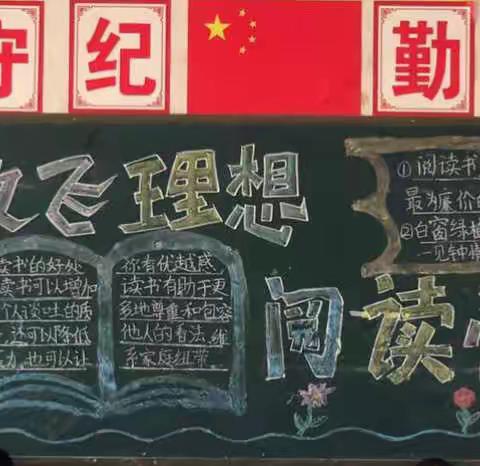 守纪 勤
飞理想
①阅读书
最为廉价的
②白窗绿植
一见钟情
读书的好处
读书可以增加
个人谈吐的质
,还可以降低
力,也可以让
你有优越感.
读书有助于更
多地尊重和包容
他人的看法,维
系家庭纽带.
阅读